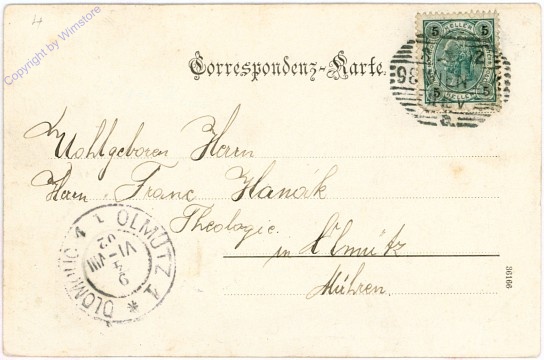 4
Copyright by Wimstore
Correspondenz-Karte.
5 5
5 5
Wohlgeboren Herrn
Herrn Franc Hanák
Theologie
in Olmütz
Mähren.
OLMÜTZ 1
OLOMOUC 1
36166